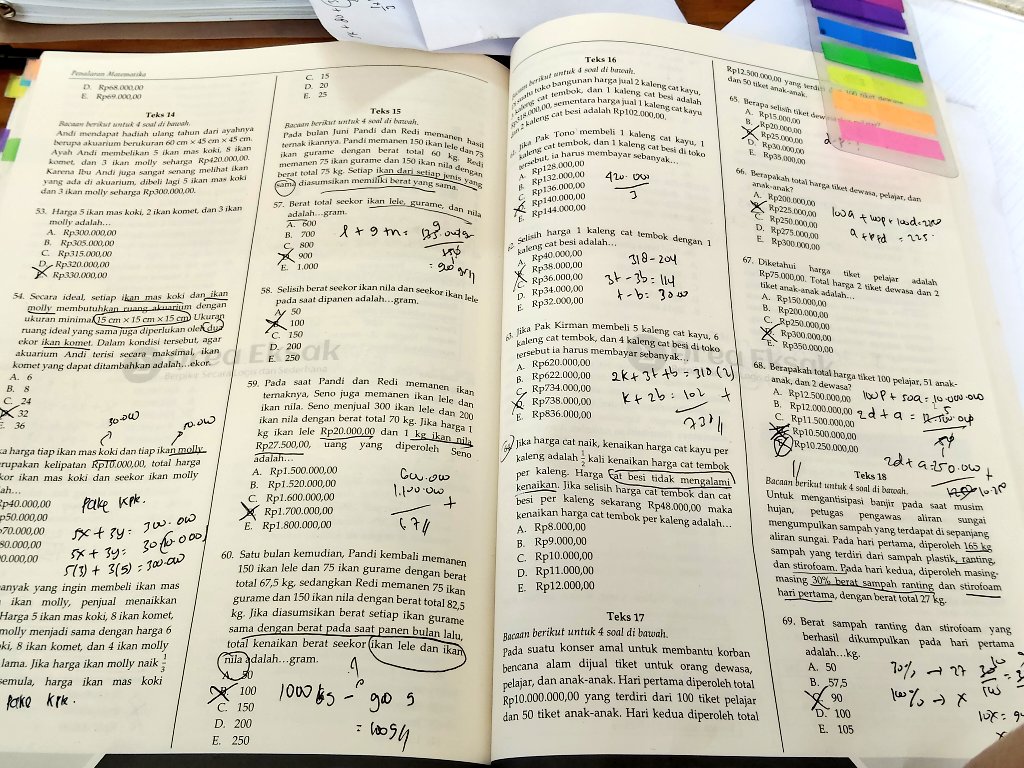 Penalaran Matematika
D. Rp68.000,00
E. Rp69.000,00
Teks 14
Bacaan berikut untuk 4 soal di bawah.
Andi mendapat hadiah ulang tahun dari ayahnya
berupa akuarium berukuran 60 cm × 45 cm × 45 cm.
Ayah Andi membelikan 5 ikan mas koki, 8 ikan
komet, dan 3 ikan molly seharga Rp420.000,00.
Karena Ibu Andi juga sangat senang melihat ikan
yang ada di akuarium, dibeli lagi 5 ikan mas koki
dan 3 ikan molly seharga Rp300.000,00.
53. Harga 5 ikan mas koki, 2 ikan komet, dan 3 ikan
molly adalah...
A. Rp300.000,00
B. Rp305.000,00
C. Rp315.000,00
D. Rp320.000,00
E. Rp330.000,00
54. Secara ideal, setiap ikan mas koki dan ikan
molly membutuhkan ruang akuarium dengan
ukuran minimal 15 cm × 15 cm × 15 cm. Ukuran
ruang ideal yang sama juga diperlukan oleh dua
ekor ikan komet. Dalam kondisi tersebut, agar
akuarium Andi terisi secara maksimal, ikan
komet yang dapat ditambahkan adalah...ekor.
A. 6
B. 8
C. 24
32
E. 36
30.000
10.000
ka harga tiap ikan mas koki dan tiap ikan molly
erupakan kelipatan Rp10.000,00, total harga
kor ikan mas koki dan seekor ikan molly
ah...
Rp40.000,00
p50.000,00
70.000,00
80.000,00
00.000,00
pake kpk.
5x + 3y = 300.000
5x + 3y = 30(10.000)
5(3) + 3(5) = 300.000
anyak yang ingin membeli ikan mas
ikan molly, penjual menaikkan
Harga 5 ikan mas koki, 8 ikan komet,
molly menjadi sama dengan harga 6
oki, 8 ikan komet, dan 4 ikan molly
lama. Jika harga ikan molly naik 1/3
semula, harga ikan mas koki
pake kpk.
C. 15
D. 20
E. 25
Teks 15
Bacaan berikut untuk 4 soal di bawah.
Pada bulan Juni Pandi dan Redi memanen hasil
ternak ikannya. Pandi memanen 150 ikan lele dan 75
ikan gurame dengan berat total 60 kg. Redi
memanen 75 ikan gurame dan 150 ikan nila dengan
berat total 75 kg. Setiap ikan dari setiap jenis yang
sama diasumsikan memiliki berat yang sama.
57. Berat total seekor ikan lele, gurame, dan nila
adalah...gram.
A. 600
B. 700
C. 800
D. 900
E. 1.000
l + g + n =
= 900 gr
58. Selisih berat seekor ikan nila dan seekor ikan lele
pada saat dipanen adalah...gram.
A. 50
B. 100
C. 150
D. 200
E. 250
59. Pada saat Pandi dan Redi memanen ikan
ternaknya, Seno juga memanen ikan lele dan
ikan nila. Seno menjual 300 ikan lele dan 200
ikan nila dengan berat total 70 kg. Jika harga 1
kg ikan lele Rp20.000,00 dan 1 kg ikan nila
Rp27.500,00, uang yang diperoleh Seno
adalah...
A. Rp1.500.000,00
B. Rp1.520.000,00
C. Rp1.600.000,00
D. Rp1.700.000,00
E. Rp1.800.000,00
600.000
1.100.000
+
60. Satu bulan kemudian, Pandi kembali memanen
150 ikan lele dan 75 ikan gurame dengan berat
total 67,5 kg, sedangkan Redi memanen 75 ikan
gurame dan 150 ikan nila dengan berat total 82,5
kg. Jika diasumsikan berat setiap ikan gurame
sama dengan berat pada saat panen bulan lalu,
total kenaikan berat seekor ikan lele dan ikan
nila adalah...gram.
A. 50
B. 100
C. 150
D. 200
E. 250
1000 gs - 900 g
= 100 g
Teks 16
Bacaan berikut untuk 4 soal di bawah.
suatu toko bangunan harga jual 2 kaleng cat kayu,
kaleng cat tembok, dan 1 kaleng cat besi adalah
318.000,00, sementara harga jual 1 kaleng cat kayu
2 kaleng cat besi adalah Rp102.000,00.
61. Jika Pak Tono membeli 1 kaleng cat kayu, 1
kaleng cat tembok, dan 1 kaleng cat besi di toko
tersebut, ia harus membayar sebanyak...
A. Rp128.000,00
B. Rp132.000,00
C. Rp136.000,00
Rp140.000,00
E. Rp144.000,00
420.000
3
62. Selisih harga 1 kaleng cat tembok dengan 1
kaleng cat besi adalah...
A. Rp40.000,00
Rp38.000,00
C. Rp36.000,00
D. Rp34.000,00
E. Rp32.000,00
318 - 204
3t - 3b = 114
t - b =
63. Jika Pak Kirman membeli 5 kaleng cat kayu, 6
kaleng cat tembok, dan 4 kaleng cat besi di toko
tersebut ia harus membayar sebanyak...
A. Rp620.000,00
B. Rp622.000,00
C. Rp734.000,00
Rp738.000,00
E. Rp836.000,00
2k + 3t + b = 318 (2)
k + 2b = 102
+
738
64. Jika harga cat naik, kenaikan harga cat kayu per
kaleng adalah 1/2 kali kenaikan harga cat tembok
per kaleng. Harga cat besi tidak mengalami
kenaikan. Jika selisih harga cat tembok dan cat
besi per kaleng sekarang Rp48.000,00 maka
kenaikan harga cat tembok per kaleng adalah...
A. Rp8.000,00
B. Rp9.000,00
C. Rp10.000,00
D. Rp11.000,00
E. Rp12.000,00
Teks 17
Bacaan berikut untuk 4 soal di bawah.
Pada suatu konser amal untuk membantu korban
bencana alam dijual tiket untuk orang dewasa,
pelajar, dan anak-anak. Hari pertama diperoleh total
Rp10.000.000,00 yang terdiri dari 100 tiket pelajar
dan 50 tiket anak-anak. Hari kedua diperoleh total
Rp12.500.000,00 yang terdiri 100 tiket dewasa
dan 50 tiket anak-anak.
65. Berapa selisih tiket
A. Rp15.000,00
B. Rp20.000,00
Rp25.000,00
D. Rp30.000,00
E. Rp35.000,00
66. Berapakah total harga tiket dewasa, pelajar, dan
anak-anak?
A. Rp200.000,00
Rp225.000,00
C. Rp250.000,00
D. Rp275.000,00
E. Rp300.000,00
a + p + d = 225
67. Diketahui harga tiket pelajar adalah
Rp75.000,00. Total harga 2 tiket dewasa dan 2
tiket anak-anak adalah...
A. Rp150.000,00
B. Rp200.000,00
C. Rp250.000,00
Rp300.000,00
E. Rp350.000,00
68. Berapakah total harga tiket 100 pelajar, 51 anak-
anak, dan 2 dewasa?
A. Rp12.500.000,00
B. Rp12.000.000,00
C. Rp11.500.000,00
Rp10.500.000,00
Rp10.250.000,00
100p + 50a = 10.000.000
2d + a =
2d + a = 250.000
+
Teks 18
Bacaan berikut untuk 4 soal di bawah.
Untuk mengantisipasi banjir pada saat musim
hujan, petugas pengawas aliran sungai
mengumpulkan sampah yang terdapat di sepanjang
aliran sungai. Pada hari pertama, diperoleh 165 kg
sampah yang terdiri dari sampah plastik, ranting,
dan stirofoam. Pada hari kedua, diperoleh masing-
masing 30% berat sampah ranting dan stirofoam
hari pertama, dengan berat total 27 kg.
69. Berat sampah ranting dan stirofoam yang
berhasil dikumpulkan pada hari pertama
adalah...kg.
A. 50
B. 57,5
C. 90
D. 100
E. 105
30% → 27
100% → x